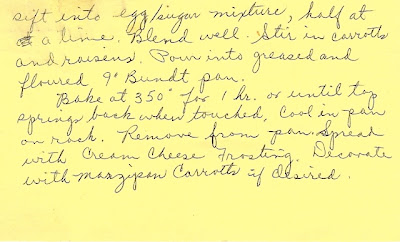 sift into egg/sugar mixture, half at
a time. Blend well. Stir in carrotts
and raisens. Pour into greased and
floured 9" Bundt pan.
Bake at 350° for 1 hr. or until top
springs back when touched, Cool in pan
on rack. Remove from pan. Spread
with Cream Cheese Frosting. Decorate
with marzipan Carrotts if desired.